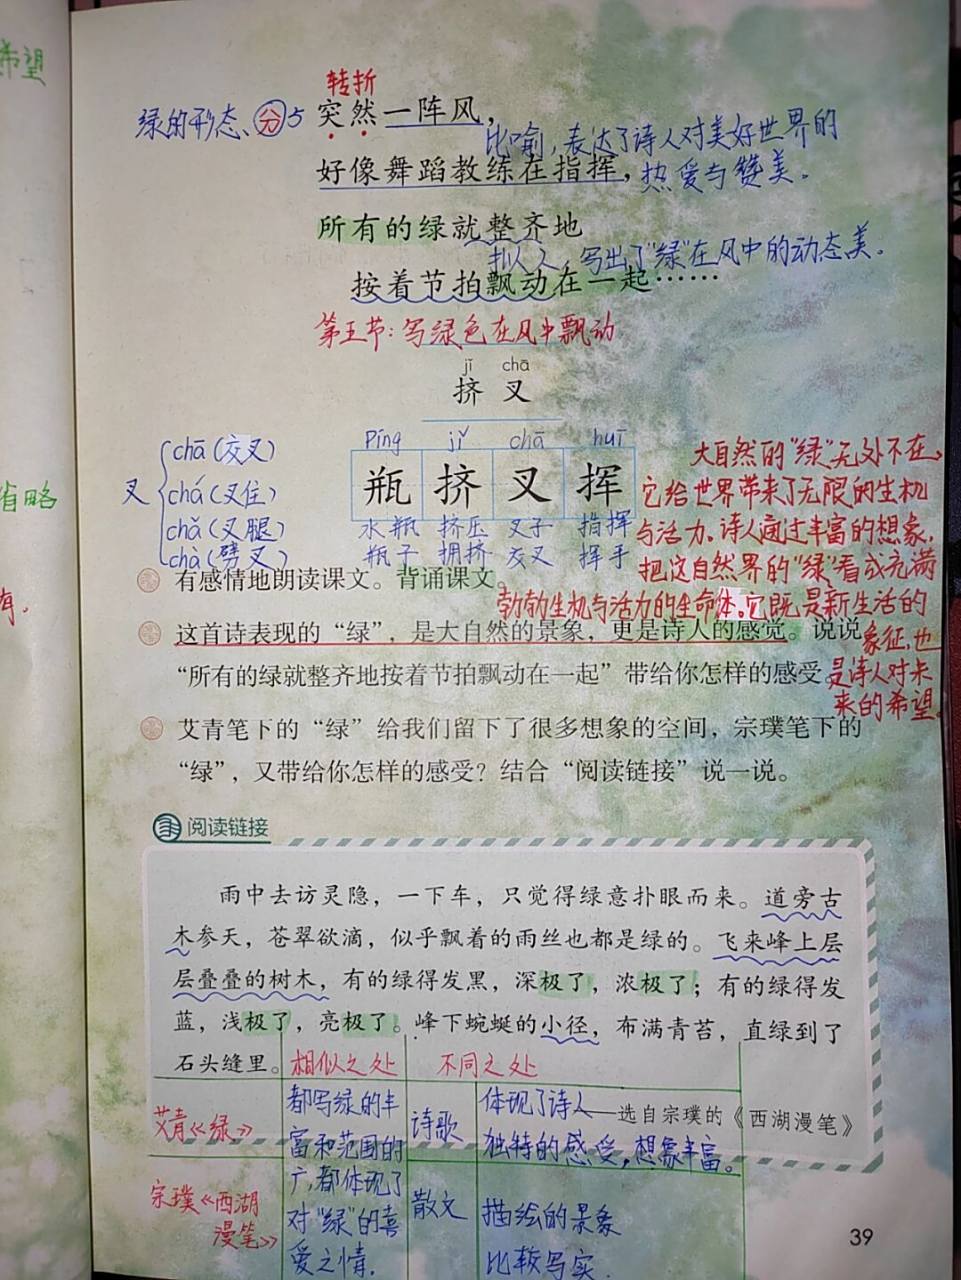 希望
省略
有.
转折
绿的形态、分5 突然一阵风，
比喻，表达了诗人对美好世界的
好像舞蹈教练在指挥，热爱与赞美。
所有的绿就整齐地
拟人，写出了"绿"在风中的动态美.
按着节拍飘动在一起……
第五节：写绿色在风中飘动
jǐ chā
挤 叉
píng jǐ chā huī
瓶 挤 叉 挥
水瓶 挤压 叉子 指挥
瓶子 拥挤 交叉 挥手
叉
chā（交叉）
chá（叉住）
chǎ（叉腿）
chà（劈叉）
大自然的"绿"无处不在，
它给世界带来了无限的生机
与活力.诗人通过丰富的想象.
把这自然界的"绿"看成充满
勃勃生机与活力的生命体.它既是新生活的
象征，也
是诗人对未
来的希望.
有感情地朗读课文。背诵课文。
这首诗表现的“绿”，是大自然的景象，更是诗人的感觉。说说
“所有的绿就整齐地按着节拍飘动在一起”带给你怎样的感受。
艾青笔下的“绿”给我们留下了很多想象的空间，宗璞笔下的
“绿”，又带给你怎样的感受？结合“阅读链接”说一说。
阅读链接
雨中去访灵隐，一下车，只觉得绿意扑眼而来。道旁古
木参天，苍翠欲滴，似乎飘着的雨丝也都是绿的。飞来峰上层
层叠叠的树木，有的绿得发黑，深极了，浓极了；有的绿得发
蓝，浅极了，亮极了。峰下蜿蜒的小径，布满青苔，直绿到了
石头缝里。
——选自宗璞的《西湖漫笔》
相似之处 不同之处
艾青《绿》
宗璞《西湖
漫笔》
都写绿的丰
富和范围的
广，都体现了
对"绿"的喜
爱之情.
诗歌
体现了诗人
独特的感受，想象丰富。
散文
描绘的景象
比较写实.
39